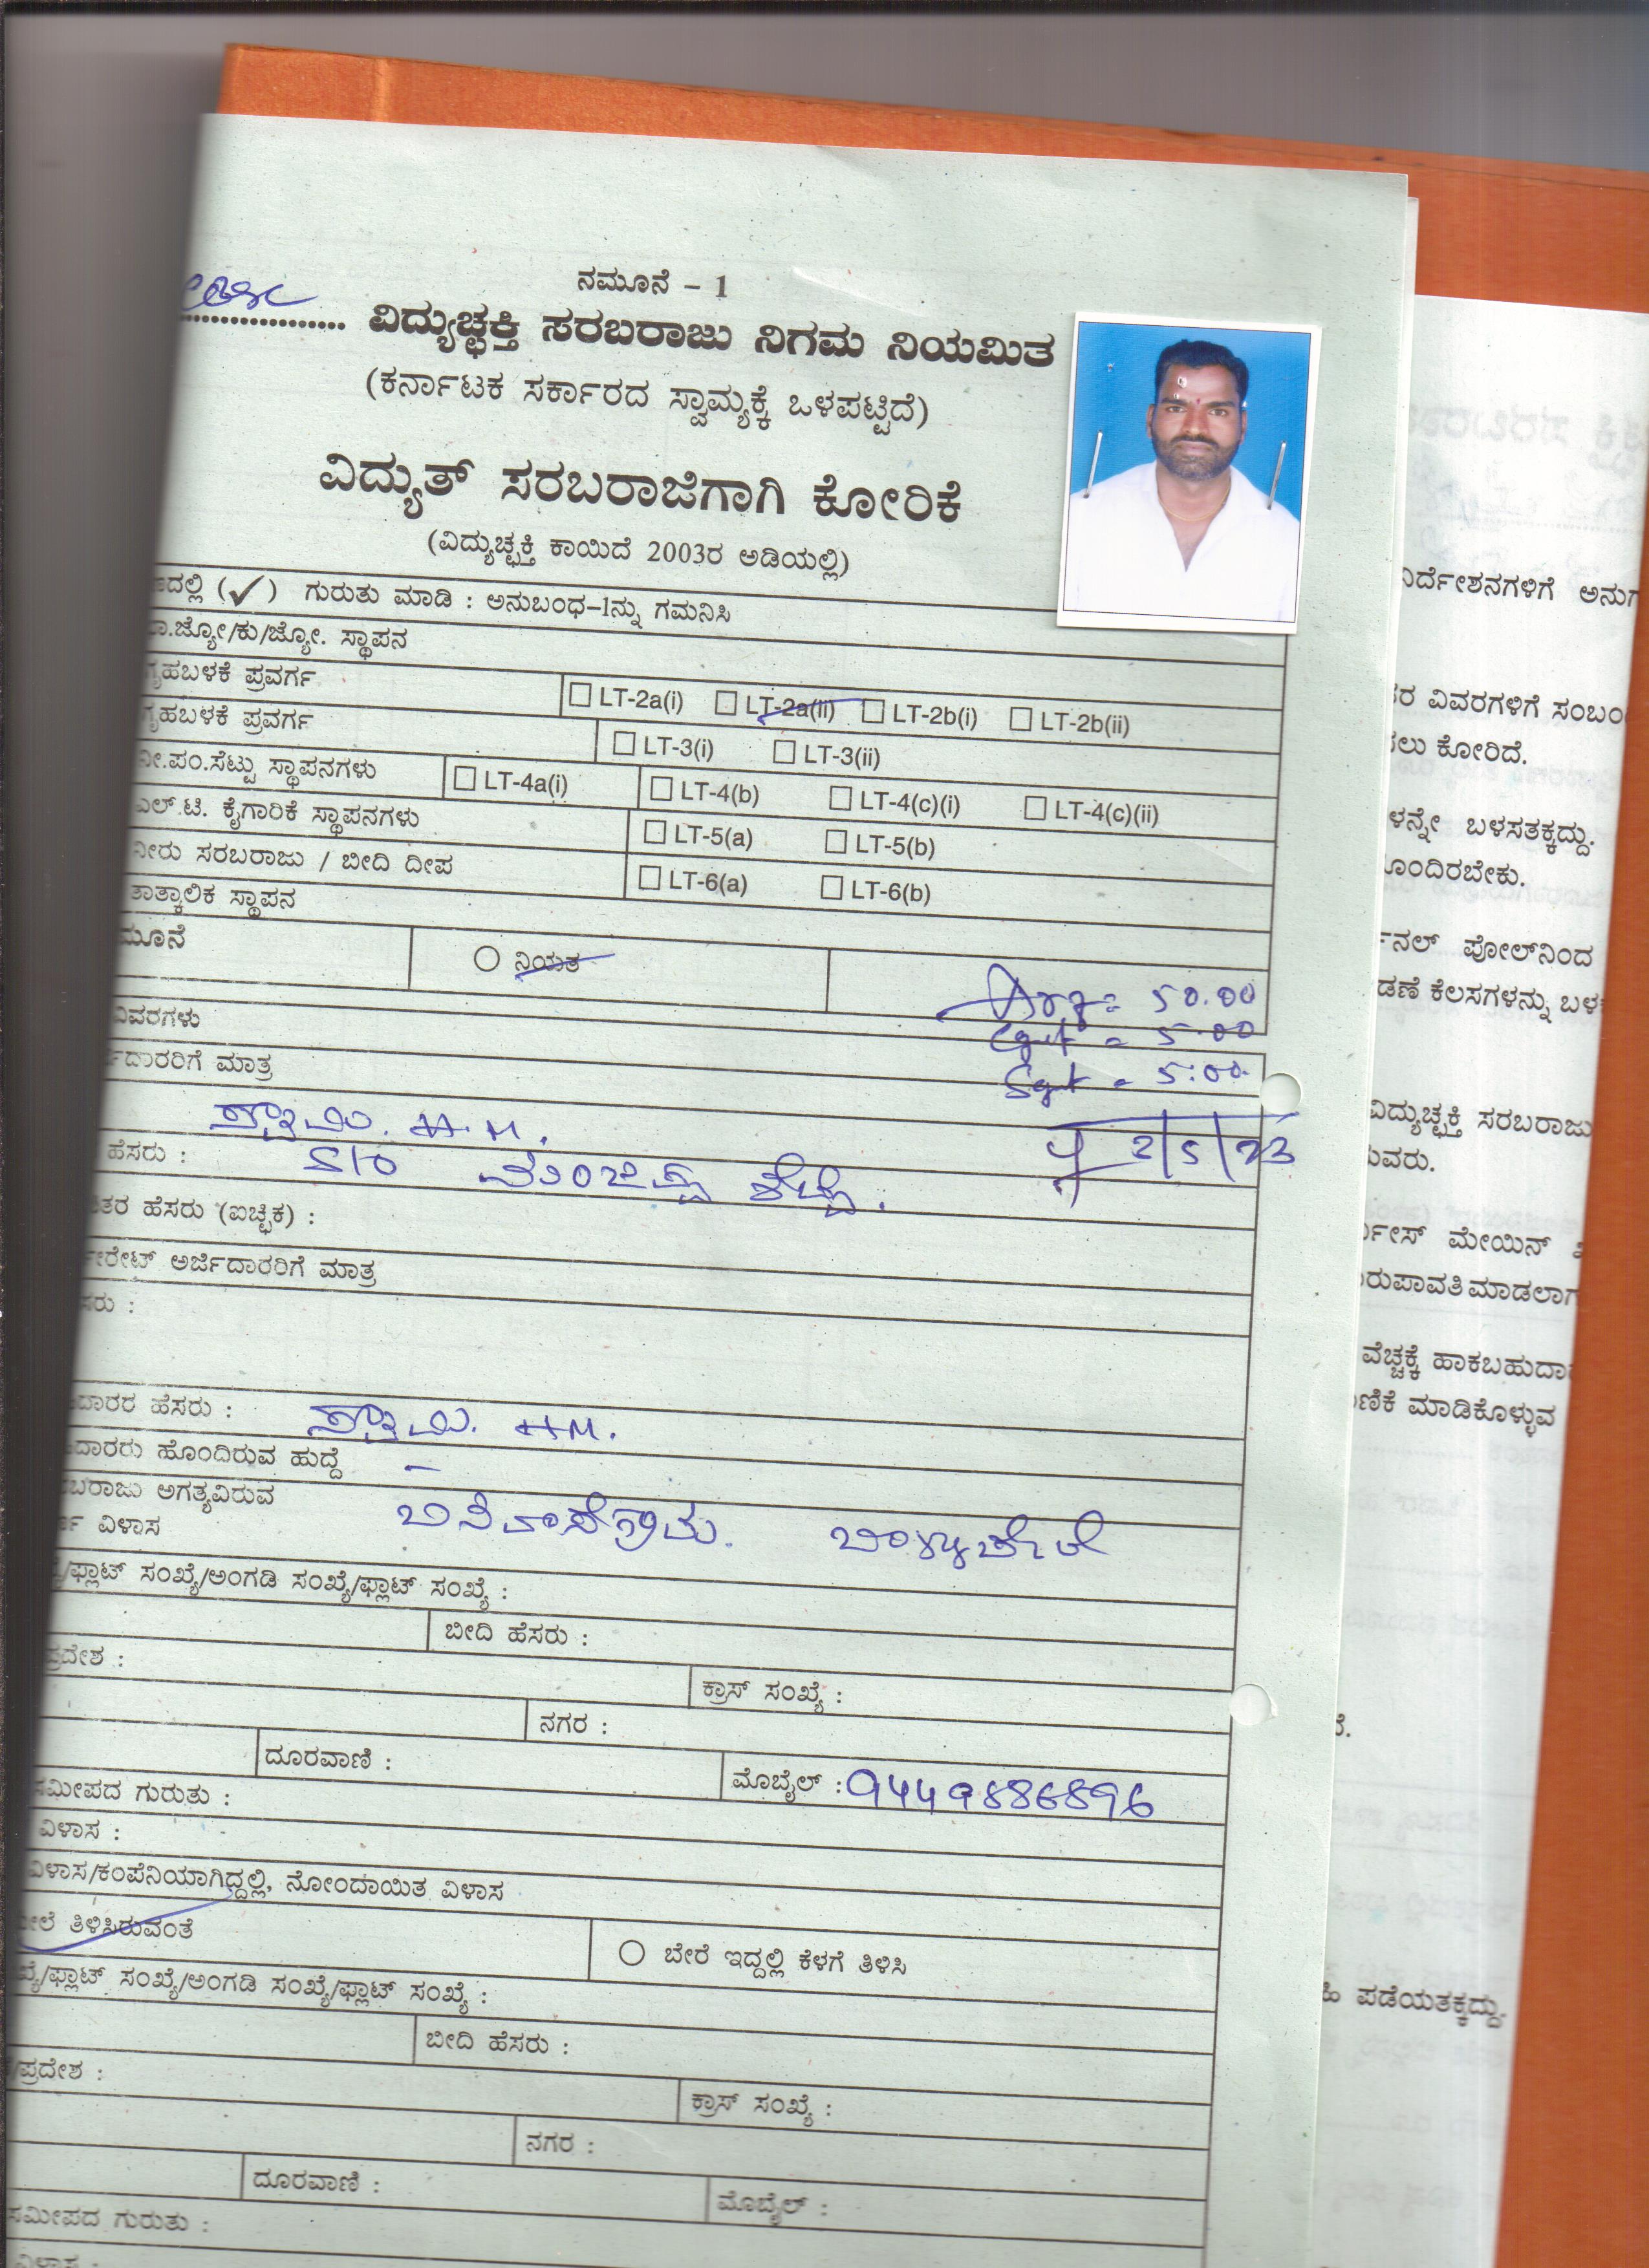 ನಮೂನೆ – 1
.................. ವಿದ್ಯುಚ್ಛಕ್ತಿ ಸರಬರಾಜು ನಿಗಮ ನಿಯಮಿತ
(ಕರ್ನಾಟಕ ಸರ್ಕಾರದ ಸ್ವಾಮ್ಯಕ್ಕೆ ಒಳಪಟ್ಟಿದೆ)
ವಿದ್ಯುತ್ ಸರಬರಾಜಿಗಾಗಿ ಕೋರಿಕೆ
(ವಿದ್ಯುಚ್ಛಕ್ತಿ ಕಾಯಿದೆ 2003ರ ಅಡಿಯಲ್ಲಿ)
(✓) ಗುರುತು ಮಾಡಿ : ಅನುಬಂಧ–1ನ್ನು ಗಮನಿಸಿ
ಾ.ಜ್ಯೋ/ಕು/ಜ್ಯೋ. ಸ್ಥಾಪನ
ಗೃಹಬಳಕೆ ಪ್ರವರ್ಗ LT-2a(i) LT-2a(ii) LT-2b(i) LT-2b(ii)
ಗೃಹಬಳಕೆ ಪ್ರವರ್ಗ LT-3(i) LT-3(ii)
ನೀ.ಪಂ.ಸೆಟ್ಟು ಸ್ಥಾಪನಗಳು LT-4a(i) LT-4(b) LT-4(c)(i) LT-4(c)(ii)
ಎಲ್.ಟಿ. ಕೈಗಾರಿಕೆ ಸ್ಥಾಪನಗಳು LT-5(a) LT-5(b)
ನೀರು ಸರಬರಾಜು / ಬೀದಿ ದೀಪ LT-6(a) LT-6(b)
ತಾತ್ಕಾಲಿಕ ಸ್ಥಾಪನ
ಮೂನೆ ನಿಯತ
50.00
ವಿವರಗಳು Cgst = 5.00
ರ್ಜಿದಾರರಿಗೆ ಮಾತ್ರ Sgst = 5:00
ಸ್ವಾಮಿ. H.M.
ಹೆಸರು : S/O ಮಂಜಪ್ಪ ಶೆಟ್ಟಿ. 2/5/23
ತರ ಹೆಸರು (ಐಚ್ಛಿಕ) :
ಪೋರೇಟ್ ಅರ್ಜಿದಾರರಿಗೆ ಮಾತ್ರ
ಸರು :
ದಾರರ ಹೆಸರು : ಸ್ವಾಮಿ. H M.
ದಾರರು ಹೊಂದಿರುವ ಹುದ್ದೆ –
ಬರಾಜು ಅಗತ್ಯವಿರುವ
ರ್ಣ ವಿಳಾಸ
/ಫ್ಲಾಟ್ ಸಂಖ್ಯೆ/ಅಂಗಡಿ ಸಂಖ್ಯೆ/ಫ್ಲಾಟ್ ಸಂಖ್ಯೆ :
ಬೀದಿ ಹೆಸರು :
ಪ್ರದೇಶ :
ಕ್ರಾಸ್ ಸಂಖ್ಯೆ :
ನಗರ :
ದೂರವಾಣಿ : ಮೊಬೈಲ್ : 9449886896
ಸಮೀಪದ ಗುರುತು :
ವಿಳಾಸ :
ವಿಳಾಸ/ಕಂಪೆನಿಯಾಗಿದ್ದಲ್ಲಿ, ನೋಂದಾಯಿತ ವಿಳಾಸ
ೇಲೆ ತಿಳಿಸಿರುವಂತೆ ಬೇರೆ ಇದ್ದಲ್ಲಿ ಕೆಳಗೆ ತಿಳಿಸಿ
ಖ್ಯೆ/ಫ್ಲಾಟ್ ಸಂಖ್ಯೆ/ಅಂಗಡಿ ಸಂಖ್ಯೆ/ಫ್ಲಾಟ್ ಸಂಖ್ಯೆ :
ಬೀದಿ ಹೆಸರು :
/ಪ್ರದೇಶ :
ಕ್ರಾಸ್ ಸಂಖ್ಯೆ :
ನಗರ :
ದೂರವಾಣಿ : ಮೊಬೈಲ್ :
ಸಮೀಪದ ಗುರುತು :
ವಿಳಾಸ :
ನಿರ್ದೇಶನಗಳಿಗೆ
ರ ವಿವರಗಳಿಗೆ
ಲು ಕೋರಿದೆ.
ಳನ್ನೇ ಬಳಸತಕ್ಕದ್ದು.
ೊಂದಿರಬೇಕು.
ನಲ್ ಪೋಲ್‌ನಿಂದ
ಡಣೆ ಕೆಲಸಗಳನ್ನು
ವಿದ್ಯುಚ್ಛಕ್ತಿ ಸರಬರಾಜು
ುವರು.
ರ್ವೀಸ್ ಮೇಯಿನ್
ವೆಚ್ಚಕ್ಕೆ
ಣಿಕೆ ಮಾಡಿಕೊಳ್ಳುವ
ಪಡೆಯತಕ್ಕದ್ದು.